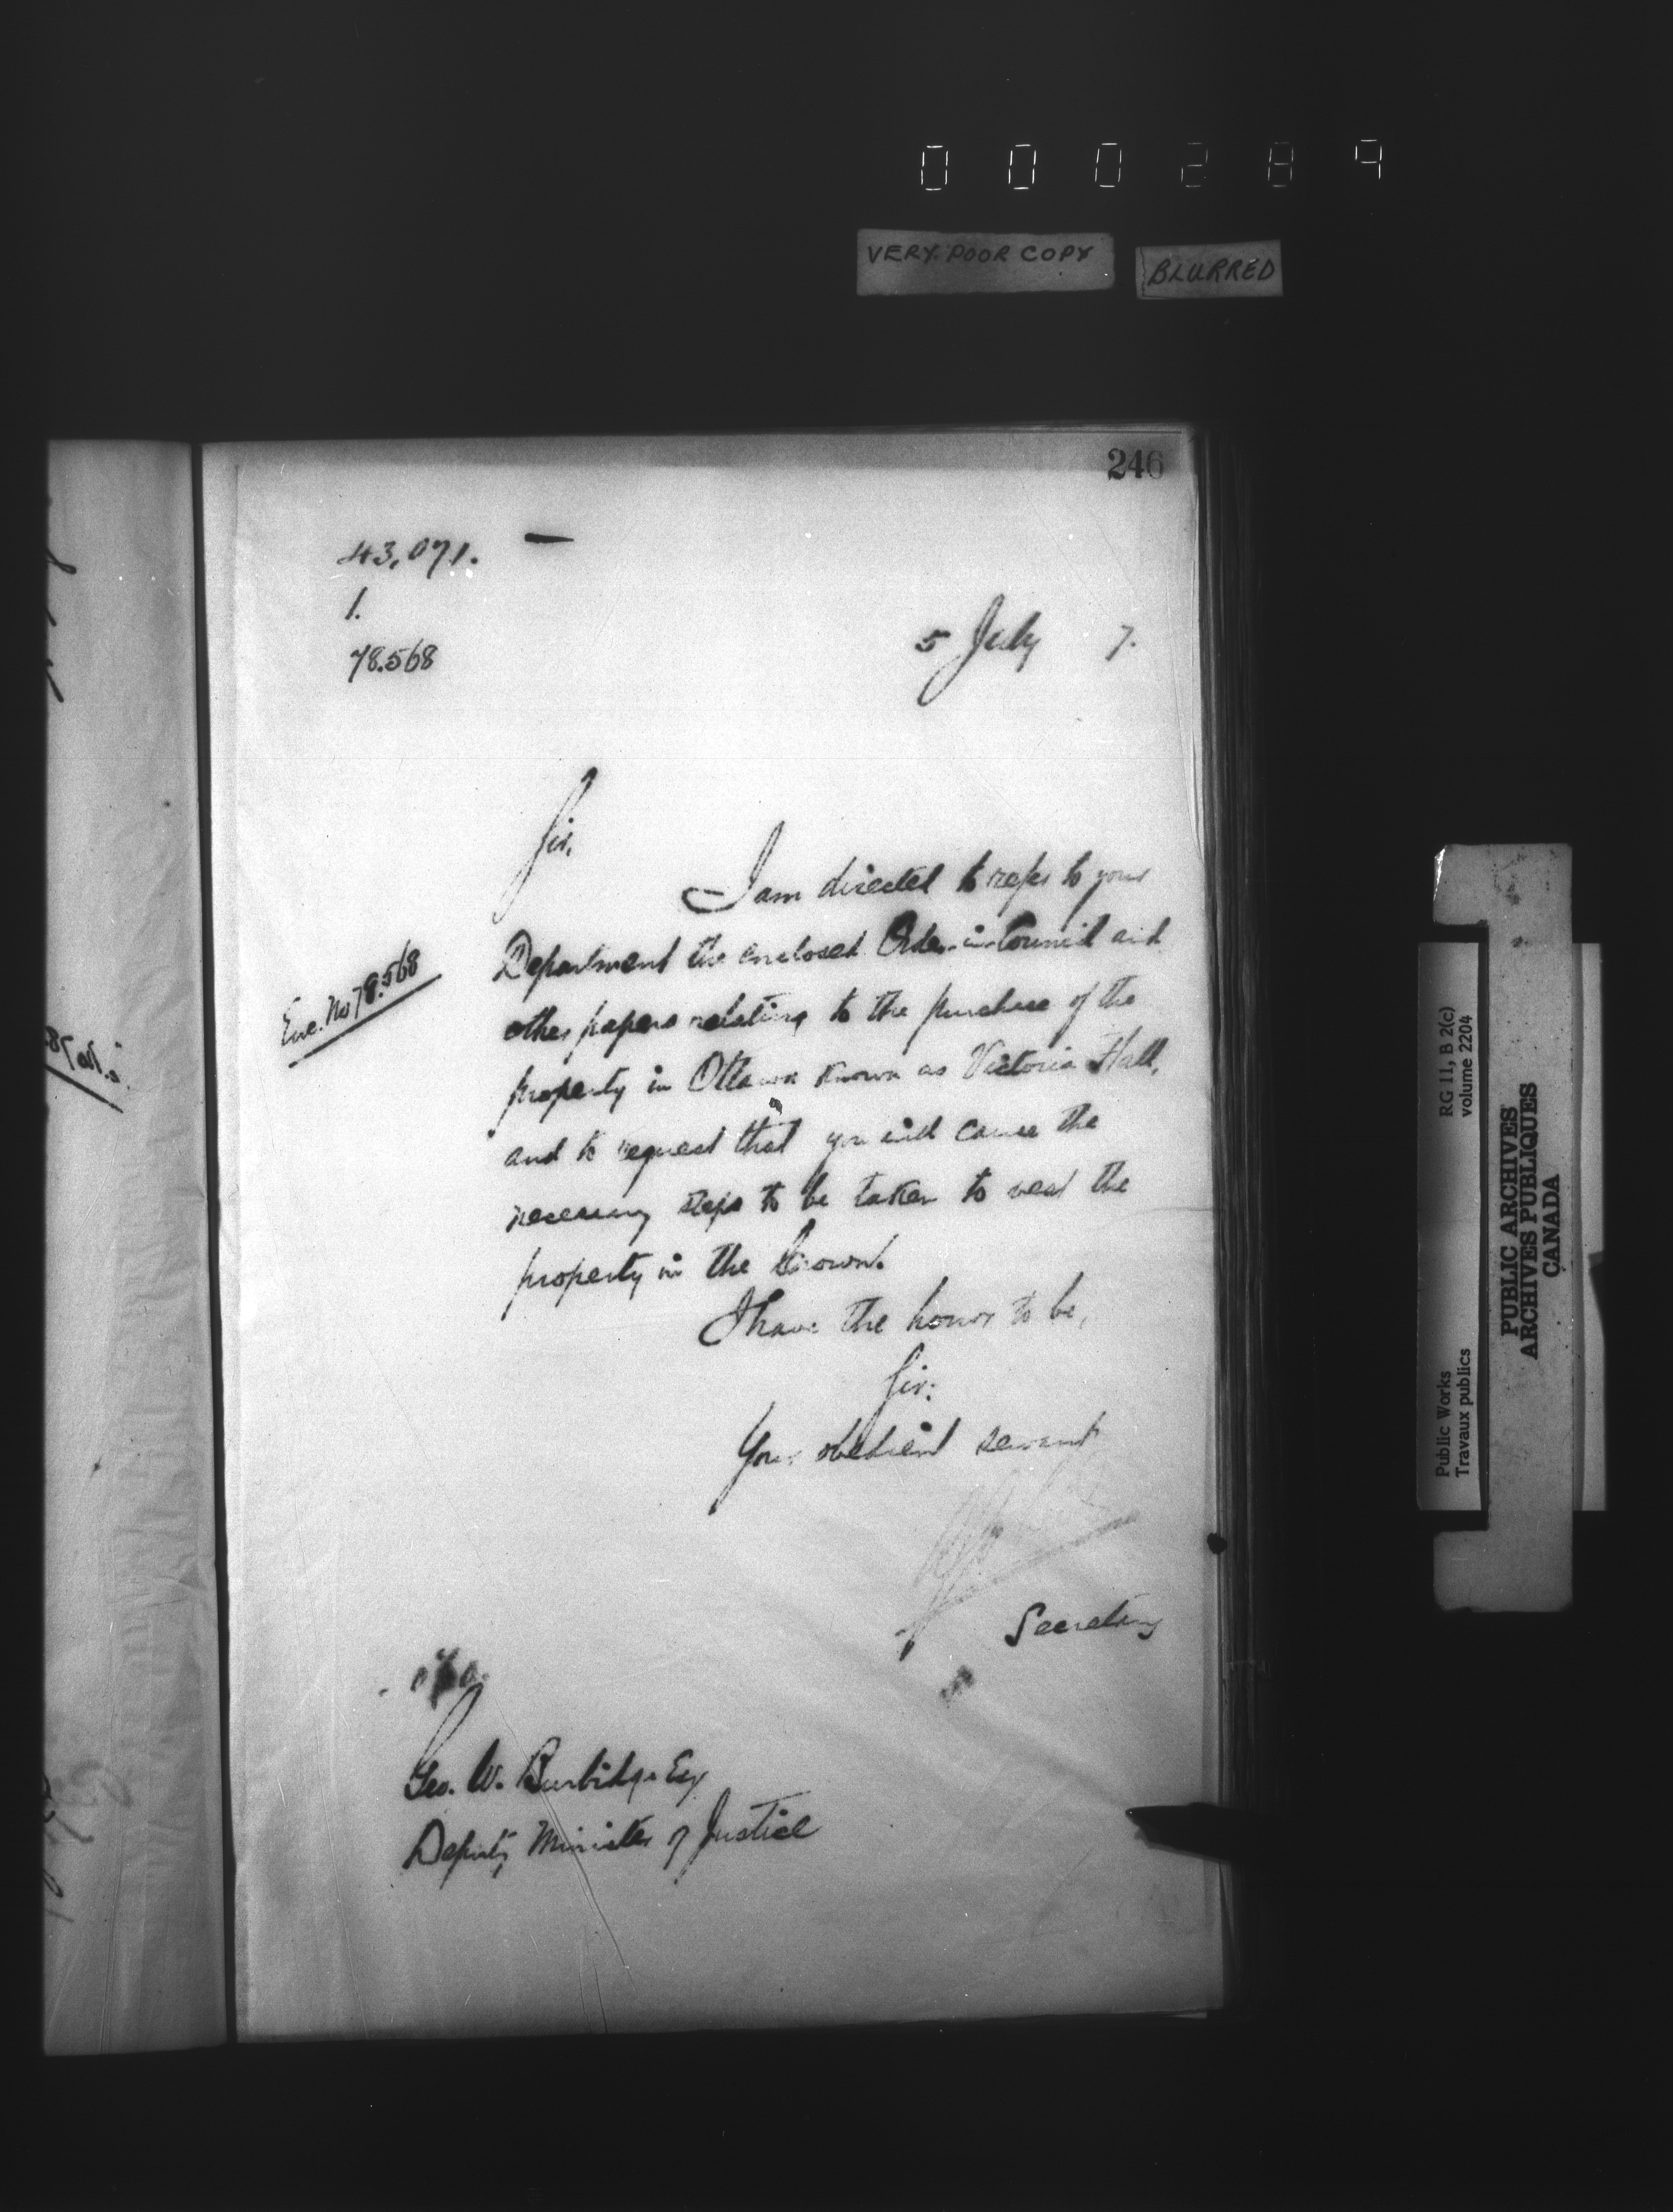 0 0 0 2 8 9
VERY POOR COPY
BLURRED
246
43,071.
1.
78.568
5 July 7.
Sir,
I am directed to refer to your
Department the enclosed Order-in-Council and
other papers relating to the purchase of the
property in Ottawa known as Victoria Hall,
and to request that you will cause the
necessary steps to be taken to vest the
property in the Crown.
Enc. No 78.568
I have the honor to be,
Sir:
Your obedient servant
Secretary
Geo. W. Burbidge Esq
Deputy Minister of Justice
RG 11, B 2(c)
volume 2204
Public Works
Travaux publics
PUBLIC ARCHIVES
ARCHIVES PUBLIQUES
CANADA